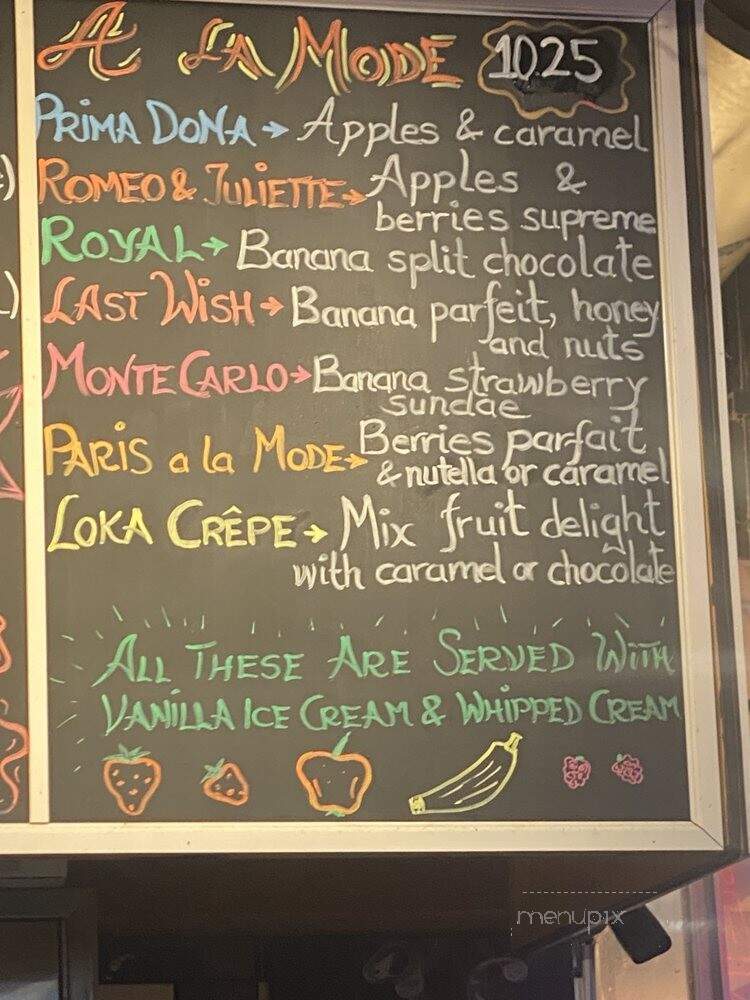 A LA MODE 10.25
PRIMA DONA → Apples & caramel
ROMEO & JULIETTE → Apples &
berries supreme
ROYAL → Banana split chocolate
LAST WISH → Banana parfeit, honey
and nuts
MONTE CARLO → Banana strawberry
sundae
PARIS a la MODE → Berries parfait
& nutella or caramel
LOKA CRÊPE → Mix fruit delight
with caramel or chocolate
ALL THESE ARE SERVED WITH
VANILLA ICE CREAM & WHIPPED CREAM
menupix